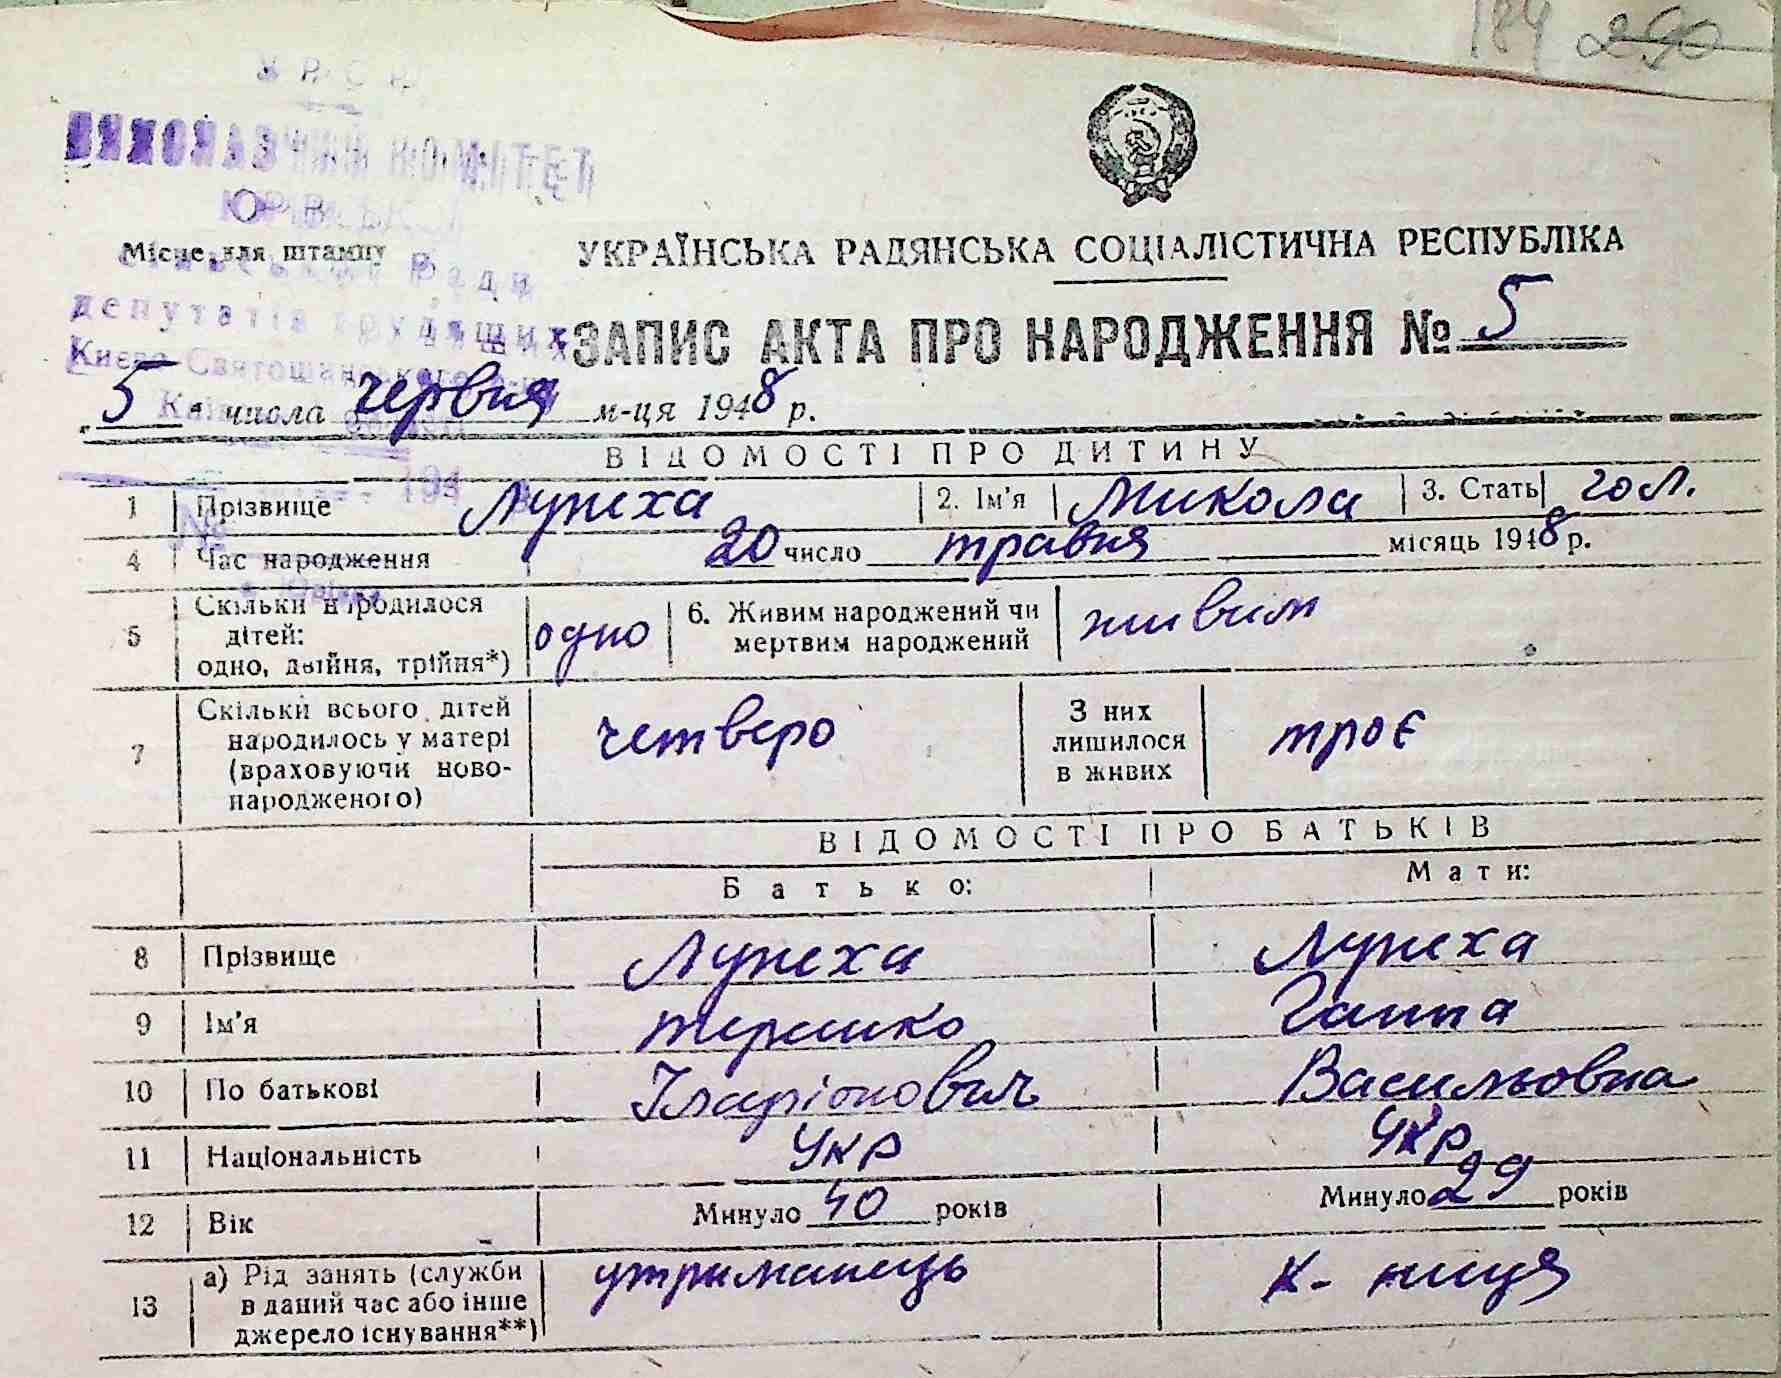 184 290
УРСР
ВИКОНАВЧИЙ КОМІТЕТ
ЮРІВСЬКОЇ
Місце для штампу
сільської Ради
депутатів трудящих
Києво-Святошинського р-ну
УКРАЇНСЬКА РАДЯНСЬКА СОЦІАЛІСТИЧНА РЕСПУБЛІКА
ЗАПИС АКТА ПРО НАРОДЖЕННЯ № 5
„5“ числа червня м-ця 1948 р.
ВІДОМОСТІ ПРО ДИТИНУ
1 Прізвище Лупеха 2. Ім'я Микола 3. Стать чол.
4 Час народження 20 число травня місяць 1948 р.
5 Скільки народилося дітей: одно, двійня, трійня*) одно 6. Живим народжений чи мертвим народжений живим
7 Скільки всього дітей народилось у матері (враховуючи новонародженого) четверо З них лишилося в живих троє
ВІДОМОСТІ ПРО БАТЬКІВ
Батько: Мати:
8 Прізвище Лупеха Лупеха
9 Ім'я Терешко Ганна
10 По батькові Іларіонович Васильовна
11 Національність Укр Укр
12 Вік Минуло 40 років Минуло 29 років
13 а) Рід занять (служби в даний час або інше джерело існування**) утриманець к-ниця